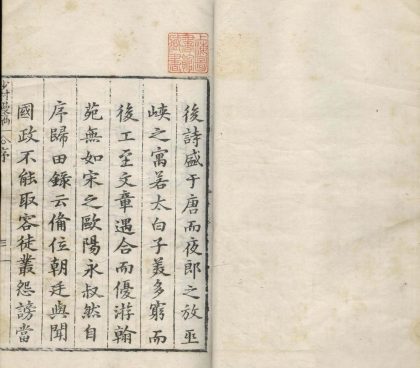 後詩盛于唐而夜郎之放巫
峽之寓若太白子美多窮而
後工至文章遇合而優游翰
苑無如宋之歐陽永叔然自
序歸田錄云備位朝廷與聞
國政不能取容徒叢怨謗當
序
三
上海圖書館藏書